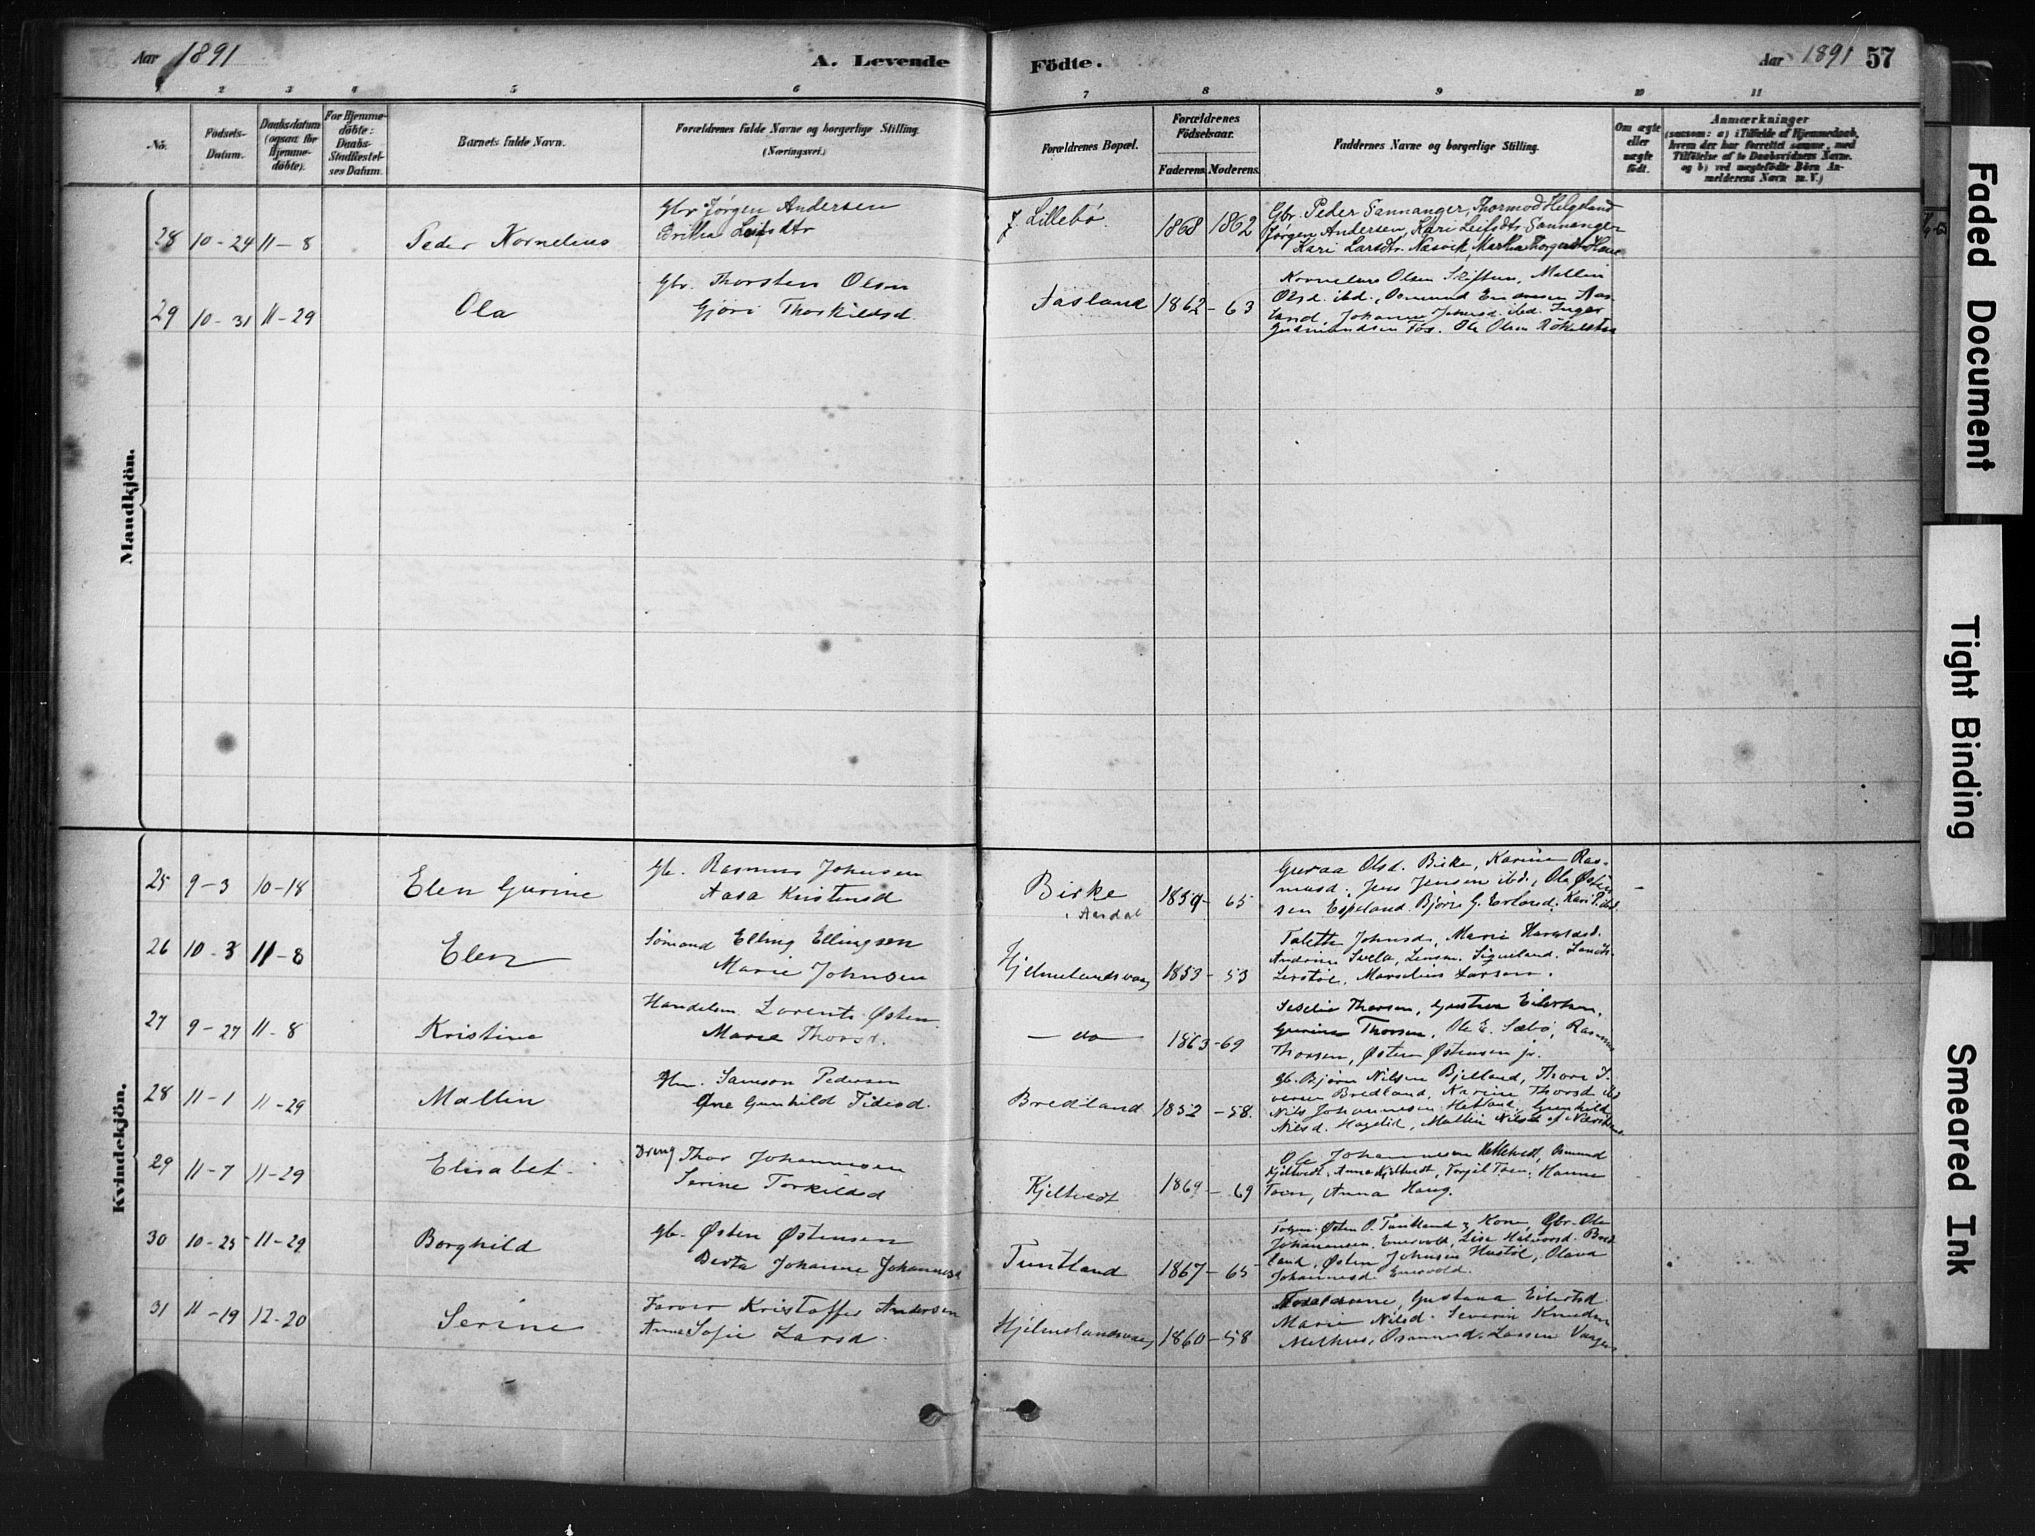 Aar 1891 A. Levende Födte. Aar 1891 57
1 2 3 4 5 6 7 8 9 10 11
No.
Födsels-
Datum.
Daabsdatum
(ogsaa for
Hjemme-
döbte).
For Hjemme-
döbte:
Daabs-
Stadfæstel-
ses Datum.
Barnets fulde Navn.
Forældrenes fulde Navne og borgerlige Stilling.
(Næringsvei.)
Forældrenes Bopæl.
Forældrenes
Födselsaar.
Faderens Moderens
Faddernes Navne og borgerlige Stilling.
Om ægte
eller
uægte
födt.
Anmærkninger
(saasom: a) i Tilfælde af Hjemmedaab,
hvem der har forrettet samme, med
Tilföielse af to Daabsvidners Navne.
og b) ved uægtefödte Börn An-
melderens Navn m. V.)
Mandkjön.
28 10-24 11-8 Peder Kornelius
Gbr Jørgen Andersen
Britha Leifsdtr
Lillebø 1868 1862
Gbr. Peder Fannanger, Thormod Helgeland
Jørgen Andersen, Kari Leifsdtr. Fannanger
Kari Larsdtr. Næsvik, Martha
29 10-31 11-29 Ola
Gbr. Thorsten Olsen
Gjøri Thorkildsd
Aasland 1862-63
Kornelius Olsen Skiftun, Mallin
Olsd. ibd., Osmund Endresen Aas-
land, Johanne Johnsd. ibd. Inger
Gudmundsen Ole Olsen
Kvindekjön.
25 9-3 10-18 Elen Gurine
Gb. Rasmus Johnsen
Aasa Kristensd
Birke
i Aardal
1859-65
Guraa Olsd. Birke, Karine Ras-
musd. Jens Jensen ibd., Ola Østen
sen Espeland. Bjørn G. Erland.
26 10-3 11-8 Elen
Sømand Elling Ellingsen
Marie Johnsen
Hjelmelandsvaag 1853-53
Talette Johnsd., Marie Haraldsd.
Andrine Svela, Lensm. Sigveland.
Marselius Larsen.
27 9-27 11-8 Kristine
Handelsm. Lorents Østen.
Marie Thorsd.
- do - 1863-69
Seselie Thorsen, Gustava Eilertsen.
Gurine Thorsen, Ole E. Sæbø, Rasmus
Thorsen, Østen Østensen jr.
28 11-1 11-29 Mallin
Hm. Samson Pedersen
Øne Gunhild Tidesd.
Bredland 1852-58.
Gb. Bjørn Nilsen Bjelland, Thore I-
versen Bredland, Karine Thorsd. ibd
Nils Johannesen Hetland, Gunhild
Nilsd. Hagelid, Mallin Nilsd.
29 11-7 11-29 Elisabet
Dreng Thor Johannesen
Serine Torkildsd
Kjeltvedt 1869-69
Ole Johannesen Kjeltvedt, Osmund
Kjeltvedt, Anna Kjeltvedt, Torgil Tøen, Hanne
Tøen, Anna Haug.
30 10-25 11-29 Borghild
Gb. Østen Østensen
Berta Johanne Johannesd
Tuntland 1867-65
Østen O. Tuntland & Kone, Gbr. Ola
Johannesen Enersvold, Lise Halvorsd. Bred
land, Østen Johnsen Hustøl, Olava
Johannesd. Enersvold.
31 11-19 12-20 Serine
Farver Kristoffer Andersen
Anne Sofie Larsd.
Hjelmelandsvaag 1860-58
Forældrene, Gustava Eilertsd.
Marie Nilsd. Severin Knudsen
Melhus, Osmund Larsen
Faded Document
Tight Binding
Smeared Ink